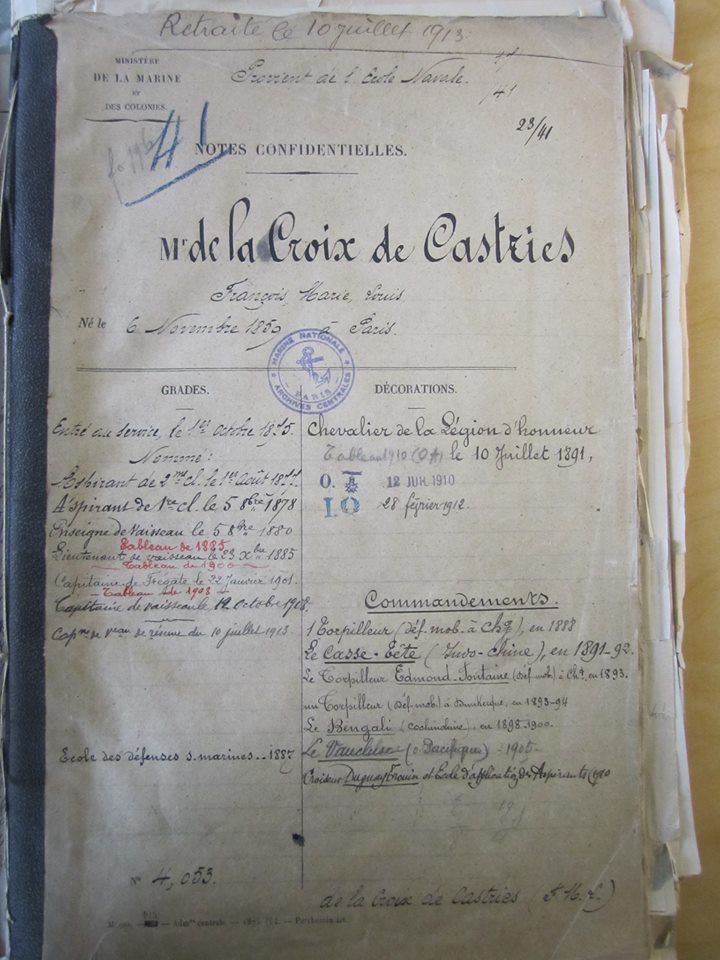 Retraité le 10 juillet 1913.
MINISTÈRE
DE LA MARINE
ET
DES COLONIES.
Provient de l'école Navale.
41
23/41
41
NOTES CONFIDENTIELLES.
Mr de la Croix de Castries
François, Marie, Louis,
Né le 6 Novembre 1859 à Paris.
MARINE NATIONALE
PARIS
ARCHIVES CENTRALES
GRADES.
Entré au service, le 1er octobre 1875.
Nommé:
Aspirant de 2me cl. le 1er Août 1877.
Aspirant de 1re cl. le 5 8bre 1878
Enseigne de vaisseau le 5 8bre 1880
Tableau de 1885
Lieutenant de vaisseau le 23 Xbre 1885
Tableau de 1900
Capitaine de Frégate le 22 Janvier 1901.
Tableau de 1908
Capitaine de vaisseau le 12 octobre 1908.
Capne de veau en réserve du 10 juillet 1913.
Ecole des défenses s. marines. -- 1887
DÉCORATIONS.
Chevalier de la Légion d'honneur
Tableau 1910 le 10 Juillet 1891,
O. 12 JUIL 1910
I O 28 février 1912.
Commandements.
1 Torpilleur (Déf. mob. à Chg), en 1888
Le Casse-Tête (Indo-Chine), en 1891-92.
Le Torpilleur Edmond-Fontaine (Déf. mob.) à Chg. en 1893.
un Torpilleur (Déf. mob.) à Dunkerque, en 1893-94
Le Bengali (Cochinchine), en 1898-1900.
Le Vaucluse (o. Pacifique) 1905.
Croiseur Duguay-Trouin et Ecole d'application des Aspirants 1910
No 4,053.
de la Croix de Castries (F. M. L.)